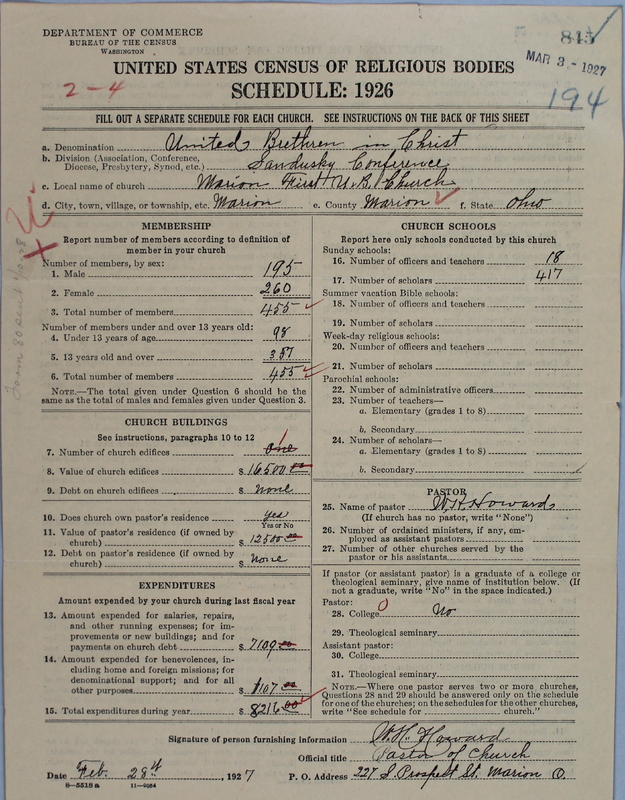 DEPARTMENT OF COMMERCE
BUREAU OF THE CENSUS
WASHINGTON
845
MAR 3 - 1927
194
2-4
UNITED STATES CENSUS OF RELIGIOUS BODIES
SCHEDULE: 1926
FILL OUT A SEPARATE SCHEDULE FOR EACH CHURCH. SEE INSTRUCTIONS ON THE BACK OF THIS SHEET
a. Denomination United Brethren in Christ
b. Division (Association, Conference,
Diocese, Presbytery, Synod, etc.) Sandusky Conference
c. Local name of church Marion First U.B. Church
d. City, town, village, or township, etc. Marion e. County Marion f. State Ohio
MEMBERSHIP
Report number of members according to definition of
member in your church
Number of members, by sex:
1. Male 195
2. Female 260
3. Total number of members 455
Number of members under and over 13 years old:
4. Under 13 years of age 98
5. 13 years old and over 357
6. Total number of members 455
NOTE.—The total given under Question 6 should be
same as the total of males and females given under Question 3.
CHURCH BUILDINGS
See instructions, paragraphs 10 to 12
7. Number of church edifices one 1
8. Value of church edifices $16500.00
9. Debt on church edifices $ none
10. Does church own pastor's residence yes
Yes or No
11. Value of pastor's residence (if owned by
church) $12500.00
12. Debt on pastor's residence (if owned by
church) $ None
EXPENDITURES
Amount expended by your church during last fiscal year
13. Amount expended for salaries, repairs,
and other running expenses; for im-
provements or new buildings; and for
payments on church debt $7109.00
14. Amount expended for benevolences, in-
cluding home and foreign missions; for
denominational support; and for all
other purposes $1107.00
15. Total expenditures during year $8216.00
CHURCH SCHOOLS
Report here only schools conducted by this church
Sunday schools:
16. Number of officers and teachers 18
17. Number of scholars 417
Summer vacation Bible schools:
18. Number of officers and teachers
19. Number of scholars
Week-day religious schools:
20. Number of officers and teachers
21. Number of scholars
Parochial schools:
22. Number of administrative officers
23. Number of teachers—
a. Elementary (grades 1 to 8)
b. Secondary
24. Number of scholars—
a. Elementary (grades 1 to 8)
b. Secondary
PASTOR
25. Name of pastor W.H. Howard
(If church has no pastor, write "None")
26. Number of ordained ministers, if any, em-
ployed as assistant pastors
27. Number of other churches served by the
pastor or his assistants
If pastor (or assistant pastor) is a graduate of a college or
theological seminary, give name of institution below. (If
not a graduate, write "No" in the space indicated.)
Pastor:
28. College No
29. Theological seminary
Assistant pastor:
30. College
31. Theological seminary
NOTE.—Where one pastor serves two or more churches,
Questions 28 and 29 should be answered only on the schedule
for one of the churches; on the schedules for the other churches,
write "See schedule for church."
Signature of person furnishing information W.H. Howard
Official title Pastor of Church
Date Feb. 28th, 1927 P. O. Address 227 S. Prospect St. Marion O.
8-5518a 11-9084